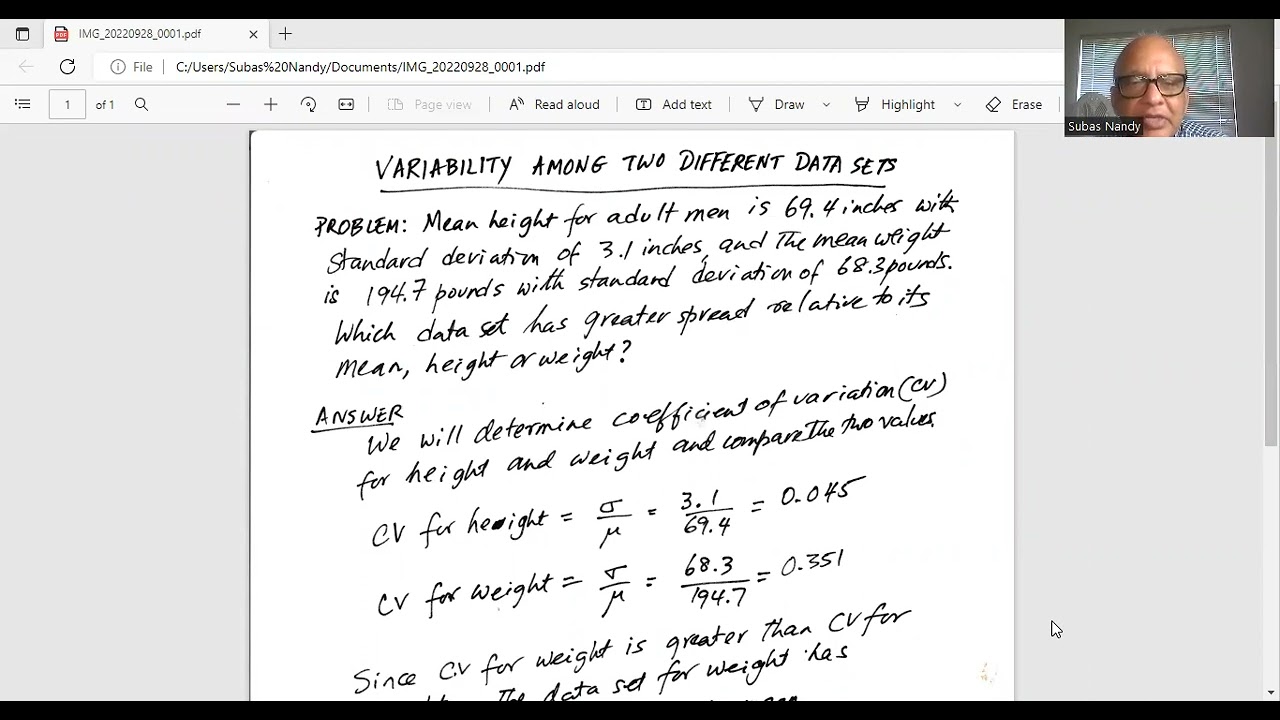 IMG_20220928_0001.pdf
File C:/Users/Subas%20Nandy/Documents/IMG_20220928_0001.pdf
1 of 1 Page view Read aloud Add text Draw Highlight Erase
Subas Nandy
VARIABILITY AMONG TWO DIFFERENT DATA SETS
PROBLEM: Mean height for adult men is 69.4 inches with
standard deviation of 3.1 inches, and The mean weight
is 194.7 pounds with standard deviation of 68.3 pounds.
Which data set has greater spread relative to its
mean, height or weight?
ANSWER
We will determine coefficient of variation (CV)
for height and weight and compare The two values.
CV for height = σ/μ = 3.1/69.4 = 0.045
CV for weight = σ/μ = 68.3/194.7 = 0.351
Since CV for weight is greater than CV for
The data set for weight has